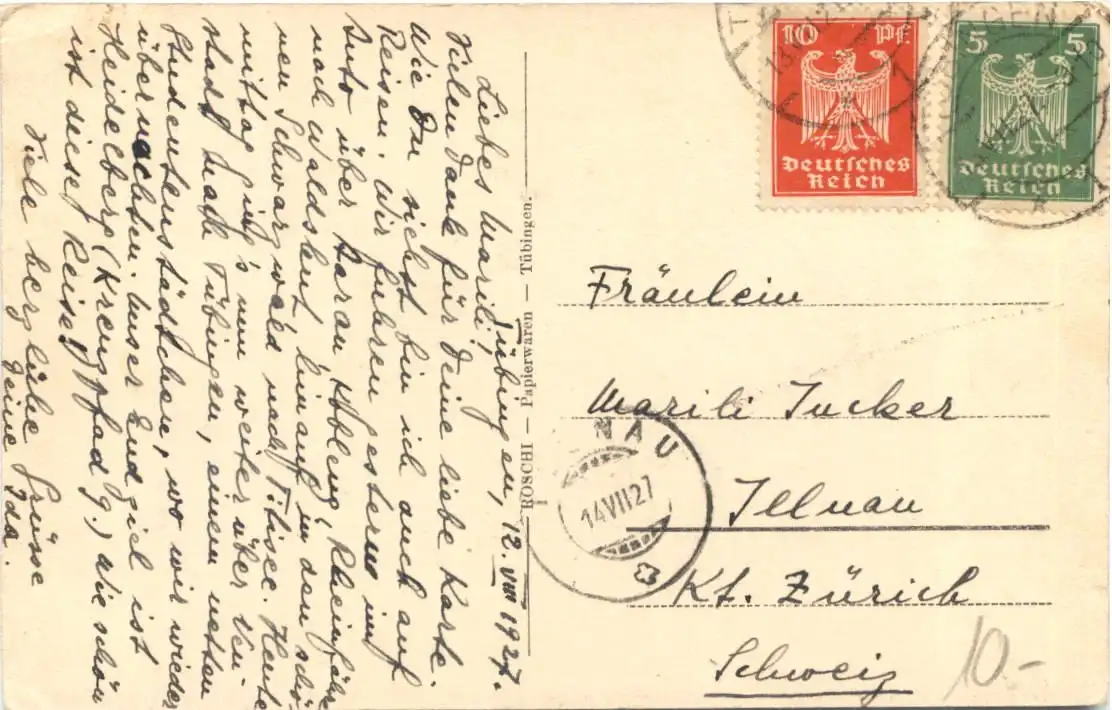 Tübingen, 12. VIII 1927.
Liebes Marili!
Vielen Dank für Deine liebe Karte.
Wie Du siehst bin ich auch auf
Reisen. Wir fuhren gestern im
Auto über Aarau, Koblenz, Rheinfähre
nach Waldshut, hinauf in den schö-
nen Schwarzwald nach Titisee. Heute
mittag ging's nun weiter über
nach Tübingen, einem netten
Studentenstädtchen, wo wir wieder
übernachten. Unser Endziel ist
Heidelberg (Kreuzpfad 9.) Wie schön
ist diese Reise!
Viele herzliche Grüsse
Deine Ida.
ROSCHI — Papierwaren — Tübingen.
10 Pf
Deutsches
Reich
5 5
Deutsches
Reich
Fräulein
Marili Jucker
Illnau
Kt. Zürich
Schweiz
NAU
14 VII 27
10.-